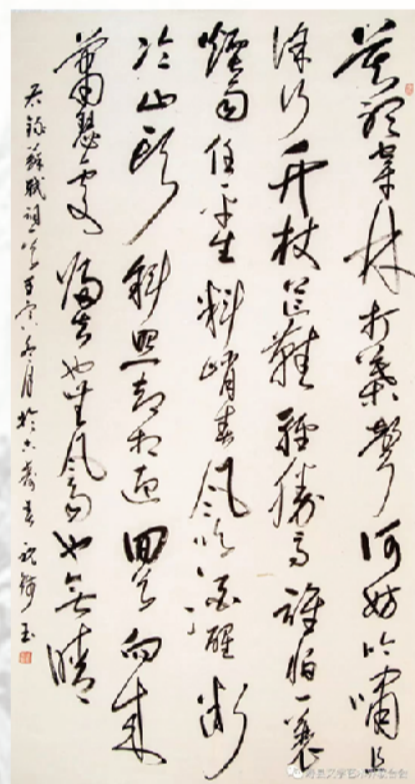 莫聽穿林打葉聲何妨吟嘯且
徐行竹杖芒鞋輕勝馬誰怕一蓑
煙雨任平生料峭春風吹酒醒微
冷山頭斜照却相迎回首向來
蕭瑟處歸去也無風雨也無晴
蘇軾詞一首寅冬月於玉